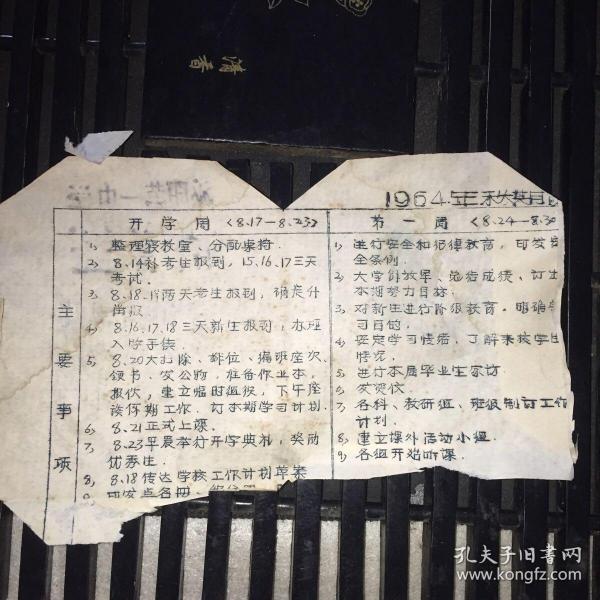 清香
1964年秋
开学周(8.17-8.23)
1) 整理寝教室、分配桌椅.
2) 8.14补考生报到, 15.16.17三天
考试.
3) 8.18.19两天老生报到, 确定升
4) 8.16.17.18三天新生报到, 办理
入学手续.
5) 8.20大扫除、排位、编班座次、
领书、发公物, 准备作业本,
报饮, 建立临时组织, 下午座
谈假期工作、订本期学习计划.
6) 8.21正式上课.
7) 8.23早晨举行开学典礼, 奖励
优秀生.
8) 8.18传达学校工作计划草案
主要事项
第一周(8.24-8.30
1) 进行安全和纪律教育, 印发安
全条例.
2) 大学解放军、总结成绩、订出
本期努力目标.
3) 对新生进行阶级教育. 明确学
习目的.
4) 坚定学习情绪, 了解未报学生
情况.
5) 进行本届毕业生家访.
6)
7) 各科、教研组、班级制订工作
计划.
8) 建立课外活动小组.
9) 各组开始听课.
孔夫子旧书网
www.kongfz.com